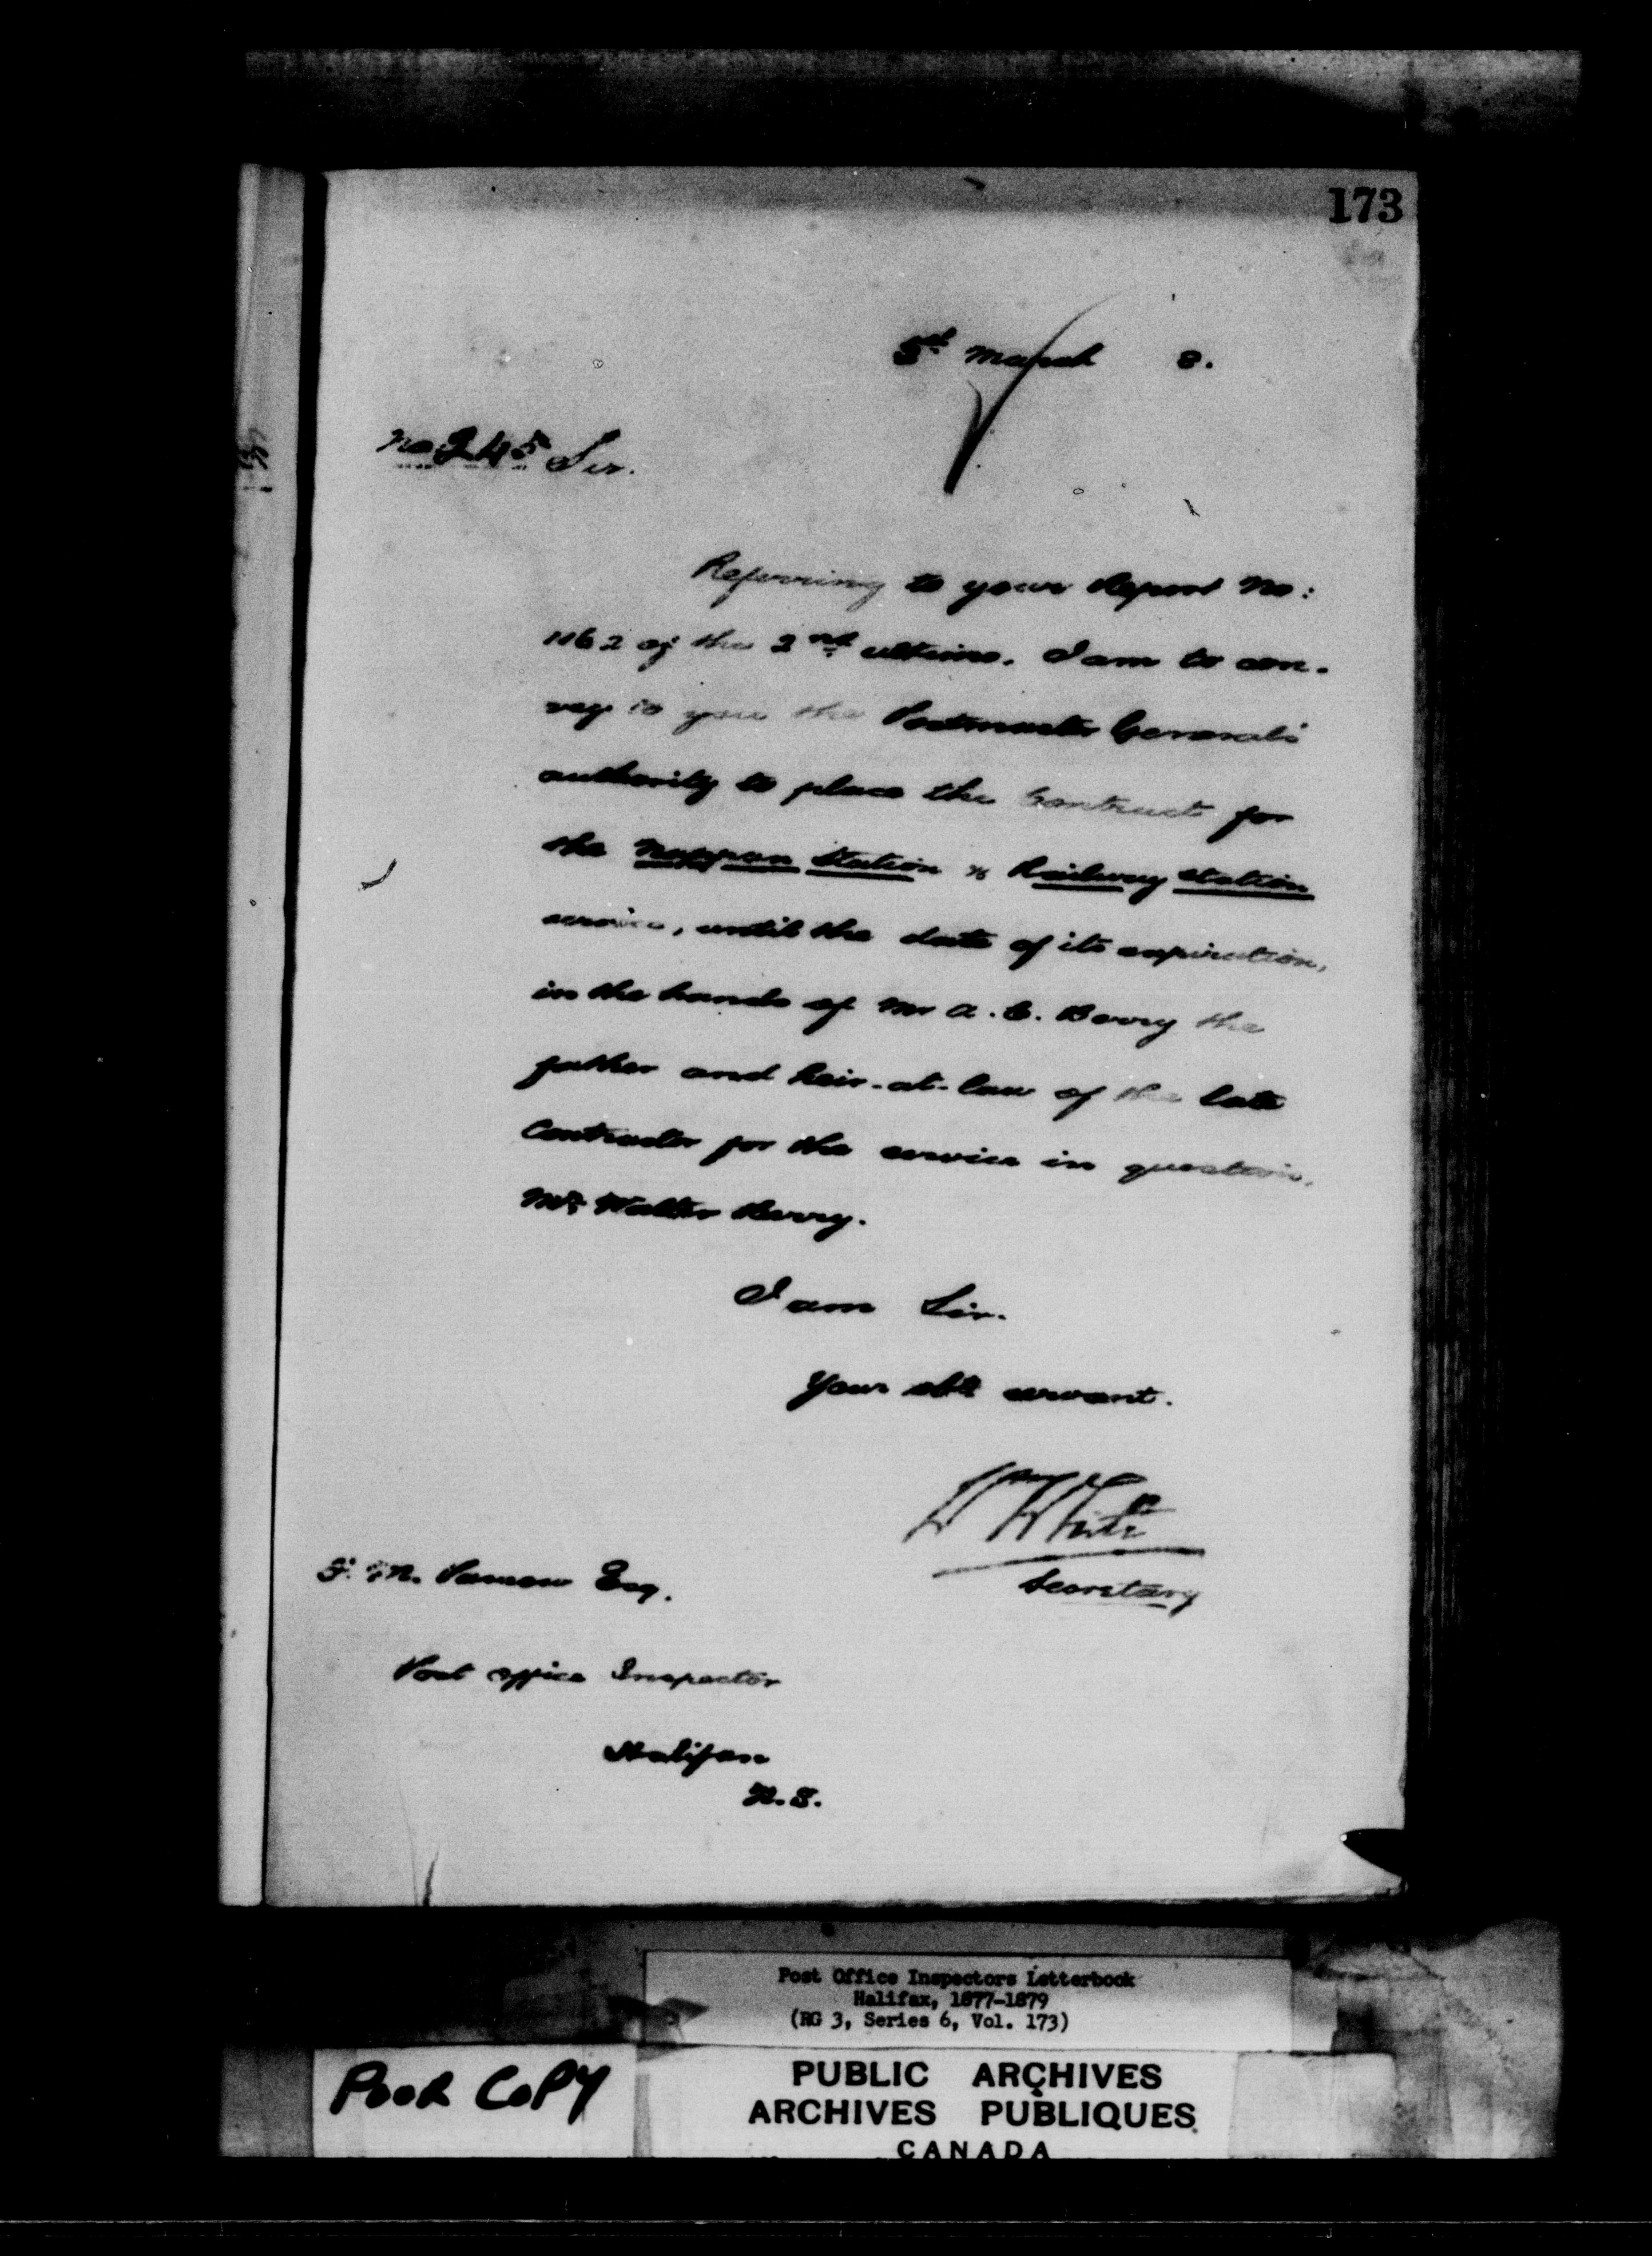 173
5th March 8.
No 245 Sir.
Referring to your Report No:
1162 of the 2nd ultimo. I am to con-
vey to you the Postmaster General's
authority to place the Contract for
the Nappan Station & Railway Station
service, until the date of its expiration,
in the hands of Mr A. C. Berry the
father and heir-at-law of the late
Contractor for the service in question,
Mr Walter Berry.
I am Sir.
Your obt servant.
Wm White
Secretary
F. M. Passow Esq.
Post Office Inspector
Halifax
N.S.
Post Office Inspectors Letterbook
Halifax, 1877-1879
(RG 3, Series 6, Vol. 173)
POOR COPY
PUBLIC ARCHIVES
ARCHIVES PUBLIQUES
CANADA